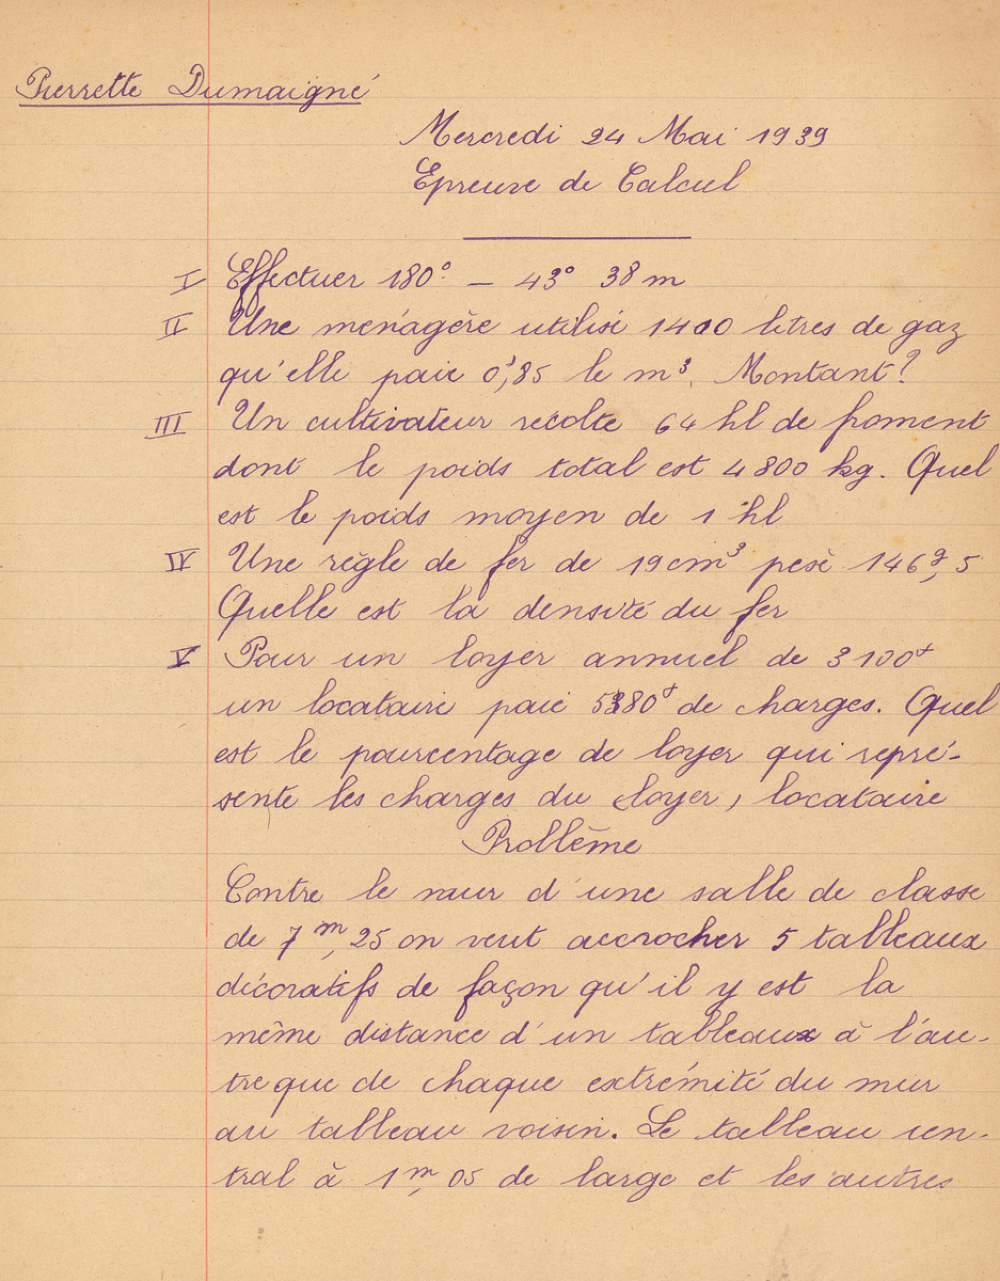 Pierrette Dumaigné
Mercredi 24 Mai 1939
Epreuve de Calcul
I Effectuer 180° – 43° 38 m
II Une menagère utilise 1400 litres de gaz
qu'elle paie 0f,85 le m3. Montant?
III Un cultivateur récolte 64 hl de froment
dont le poids total est 4800 kg. Quel
est le poids moyen de 1 hl
IV Une règle de fer de 19cm3 pèse 146g,5
Quelle est la densité du fer
V Pour un loyer annuel de 3100f
un locataire paie de charges. Quel
est le pourcentage de loyer qui repré-
sente les charges du loyer, locataire
Problème
Contre le mur d'une salle de classe
de 7m,25 on veut accrocher 5 tableaux
décoratifs de façon qu'il y est la
même distance d'un tableaux à l'au-
tre que de chaque extrémité du mur
au tableau voisin. Le tableau cen-
tral à 1m,05 de large et les autres